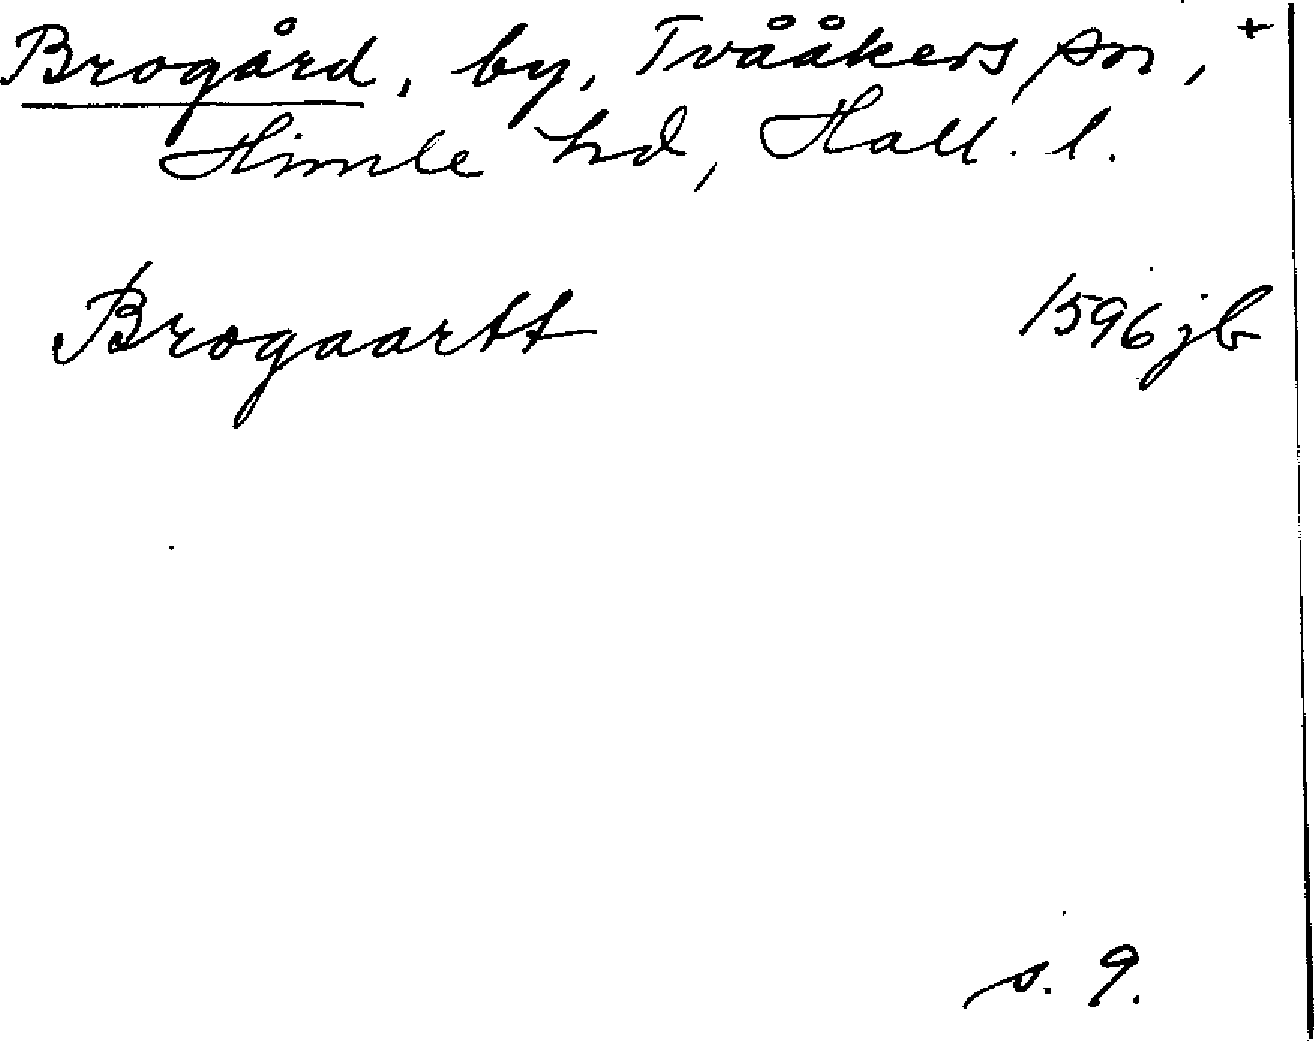 Brogård, by, Tvååkers sn, +
Himle hd, Hall. l.
Brogaartt 1596 jb
s. 9.